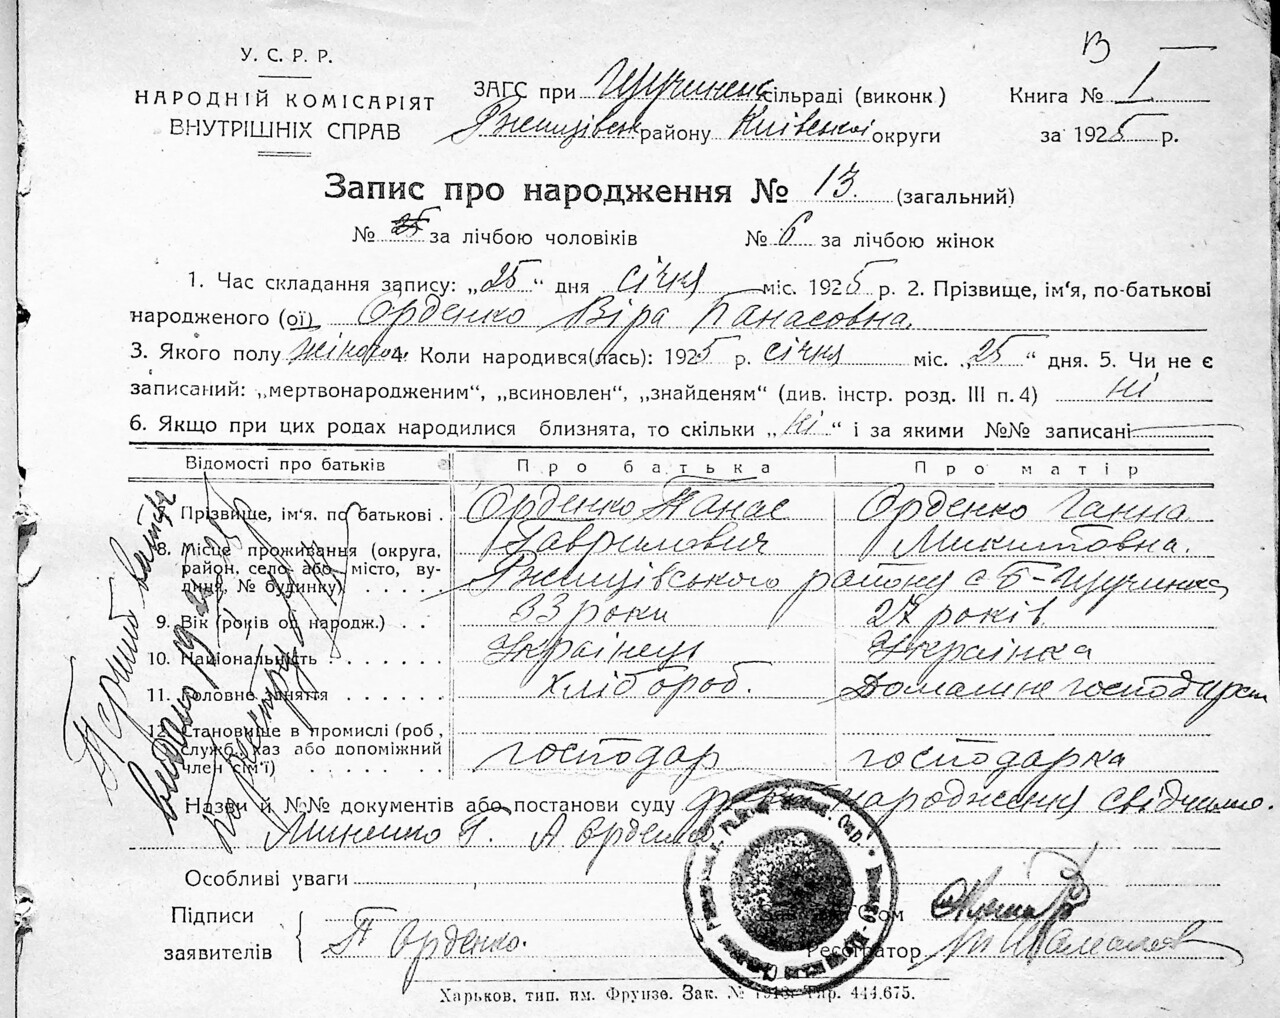 В —
У. С. Р. Р.
НАРОДНІЙ КОМІСАРІЯТ
ВНУТРІШНІХ СПРАВ
ЗАГС при Щучинськ сільраді (виконк)
Ржищівськ району Київської округи
Книга № 1
за 1925 р.
Запис про народження № 13 (загальний)
№ 25 за лічбою чоловіків № 6 за лічбою жінок
1. Час складання запису: „25“ дня січня міс. 1925 р. 2. Прізвище, ім'я, по-батькові
народженого (ої) Орденко Віра Панасовна.
3. Якого полу жіночого 4. Коли народився(лась): 1925 р. січня міс. „25“ дня. 5. Чи не є
записаний: „мертвонародженим“, „всиновлен“, „знайденям“ (див. інстр. розд. III п. 4) ні
6. Якщо при цих родах народилися близнята, то скільки „ні“ і за якими №№ записані
Відомості про батьків Про батька Про матір
Прізвище, ім'я. по батькові. Орденко Панас Орденко Ганна
Гаврилович Микитовна.
8. Місце проживання (округа, район, село або місто, вулиця, № будинку) Ржищівського району с Б-Щучинка
9. Вік (років од народж.) 33 роки 27 років
10. Національність Українець Українка
11. Головне заняття Хлібороб. Домашне господарст
12. Становище в промислі (роб, служб, хаз або допоміжний член сім'ї) господар господарка
Назви й №№ документів або постанови суду народження свідчимо.
Миненко Г. А Орденко
Особливі уваги
Підписи
заявителів П Орденко.
Зав. ЗАГСом
Реєстратор
Перший витяг
видано
Харьков, тип. им. Фрунзе. Зак. № Тир. 444.675.